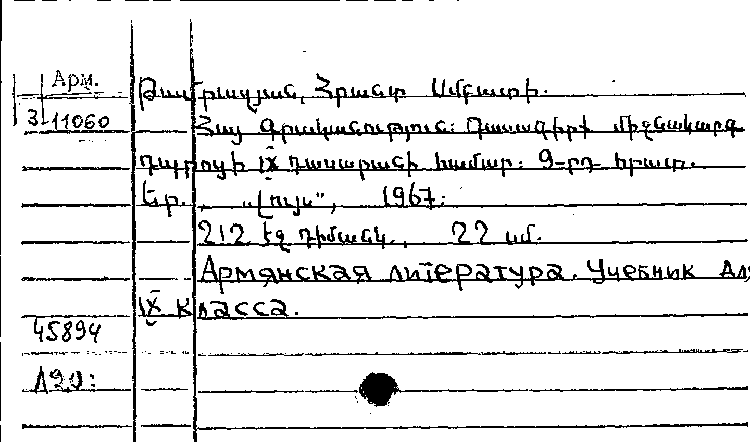 Арм.
3 11060
Թամրազյան, Հրանտ Սմբատի.
Հայ գրականություն: Դասագիրք միջնակարգ
դպրոցի IX դասարանի համար: 9-րդ հրատ.
Եր., „Լույս”, 1967:
212 էջ դիմանկ., 22 սմ.
Армянская литература. Учебник для
IX класса.
45894